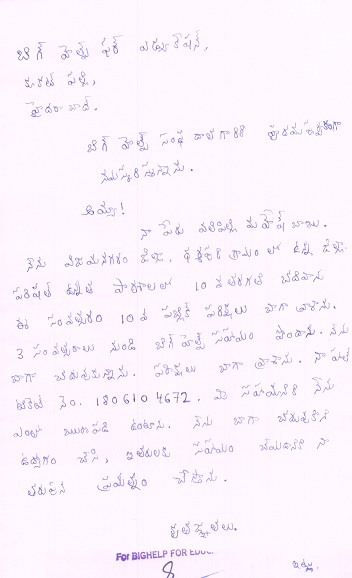 బిగ్ హెల్ప్ ఫర్ ఎడ్యుకేషన్,
కూకట్ పల్లి,
హైదరాబాద్.
బిగ్ హెల్ప్ సంస్థ వారికి హృదయపూర్వకంగా
నమస్కరిస్తున్నాను.
అమ్మా!
నా పేరు వలిపిల్లి మహేష్ బాబు.
నేను విజయనగరం జిల్లా, గ్రామం లో ఉన్న జిల్లా
పరిషత్ ఉన్నత పాఠశాలలో 10వ తరగతి చదివాను
ఈ సంవత్సరం 10వ పబ్లిక్ పరీక్షలు బాగా వ్రాశాను.
3 సంవత్సరాలు నుండి బిగ్ హెల్ప్ సహాయం పొందాను. నేను
బాగా చదువుకున్నాను. పరీక్షలు బాగా వ్రాశాను. నా హాల్
టికెట్ నెం. 1806104672. మీ సహాయానికి నేను
ఎంతో ఋణపడి ఉంటాను. నేను బాగా చదువుకొని
ఉద్యోగం చేసి, ఇతరులకు సహాయం చేయడానికి నా
తరుపున ప్రయత్నం చేస్తాను.
కృతజ్ఞతలు.
For BIGHELP FOR EDUC
ఇట్లు,